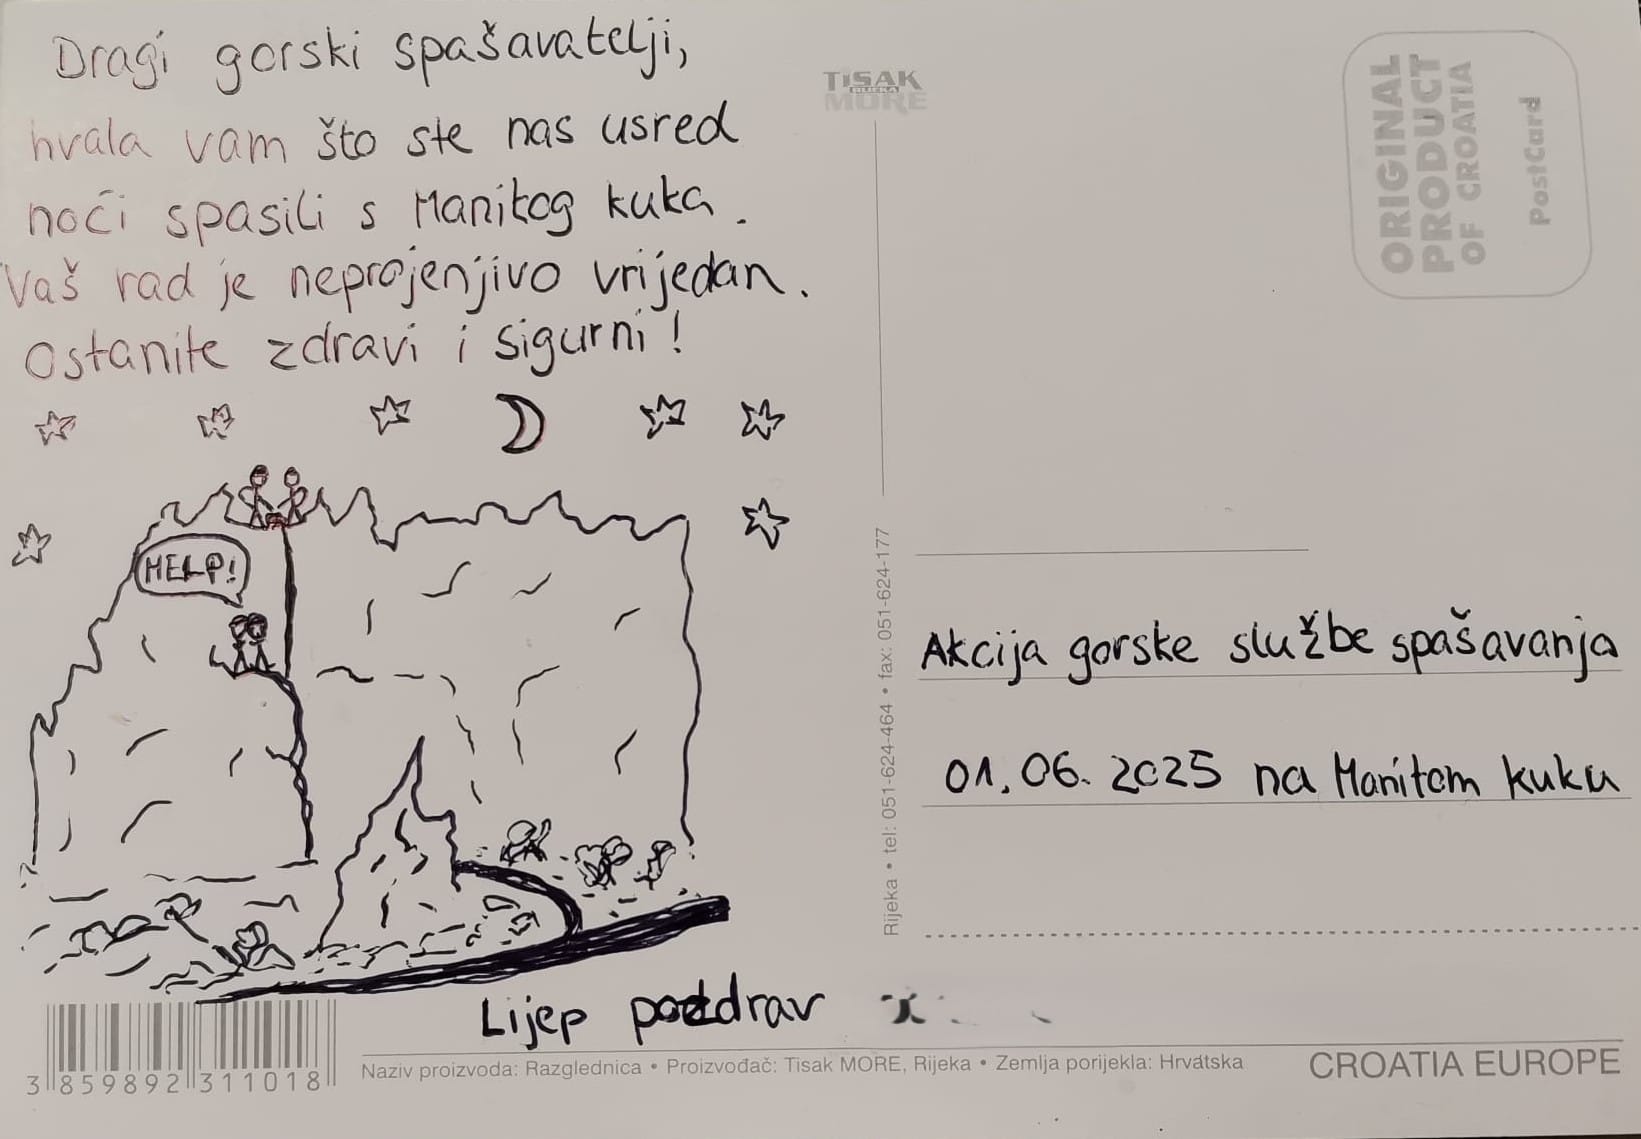 Dragi gorski spašavatelji,
hvala vam što ste nas usred
noći spasili s Manitog kuka.
Vaš rad je neprojenjivo vrijedan.
Ostanite zdravi i sigurni!
HELP!
Lijep pozdrav
TISAK
RIJEKA
MORE
ORIGINAL
PRODUCT
OF CROATIA
PostCard
Rijeka • tel: 051-624-464 • fax: 051-624-177
Akcija gorske službe spašavanja
01.06.2025 na Manitom kuku
3 859892 311018
Naziv proizvoda: Razglednica • Proizvođač: Tisak MORE, Rijeka • Zemlja porijekla: Hrvatska
CROATIA EUROPE